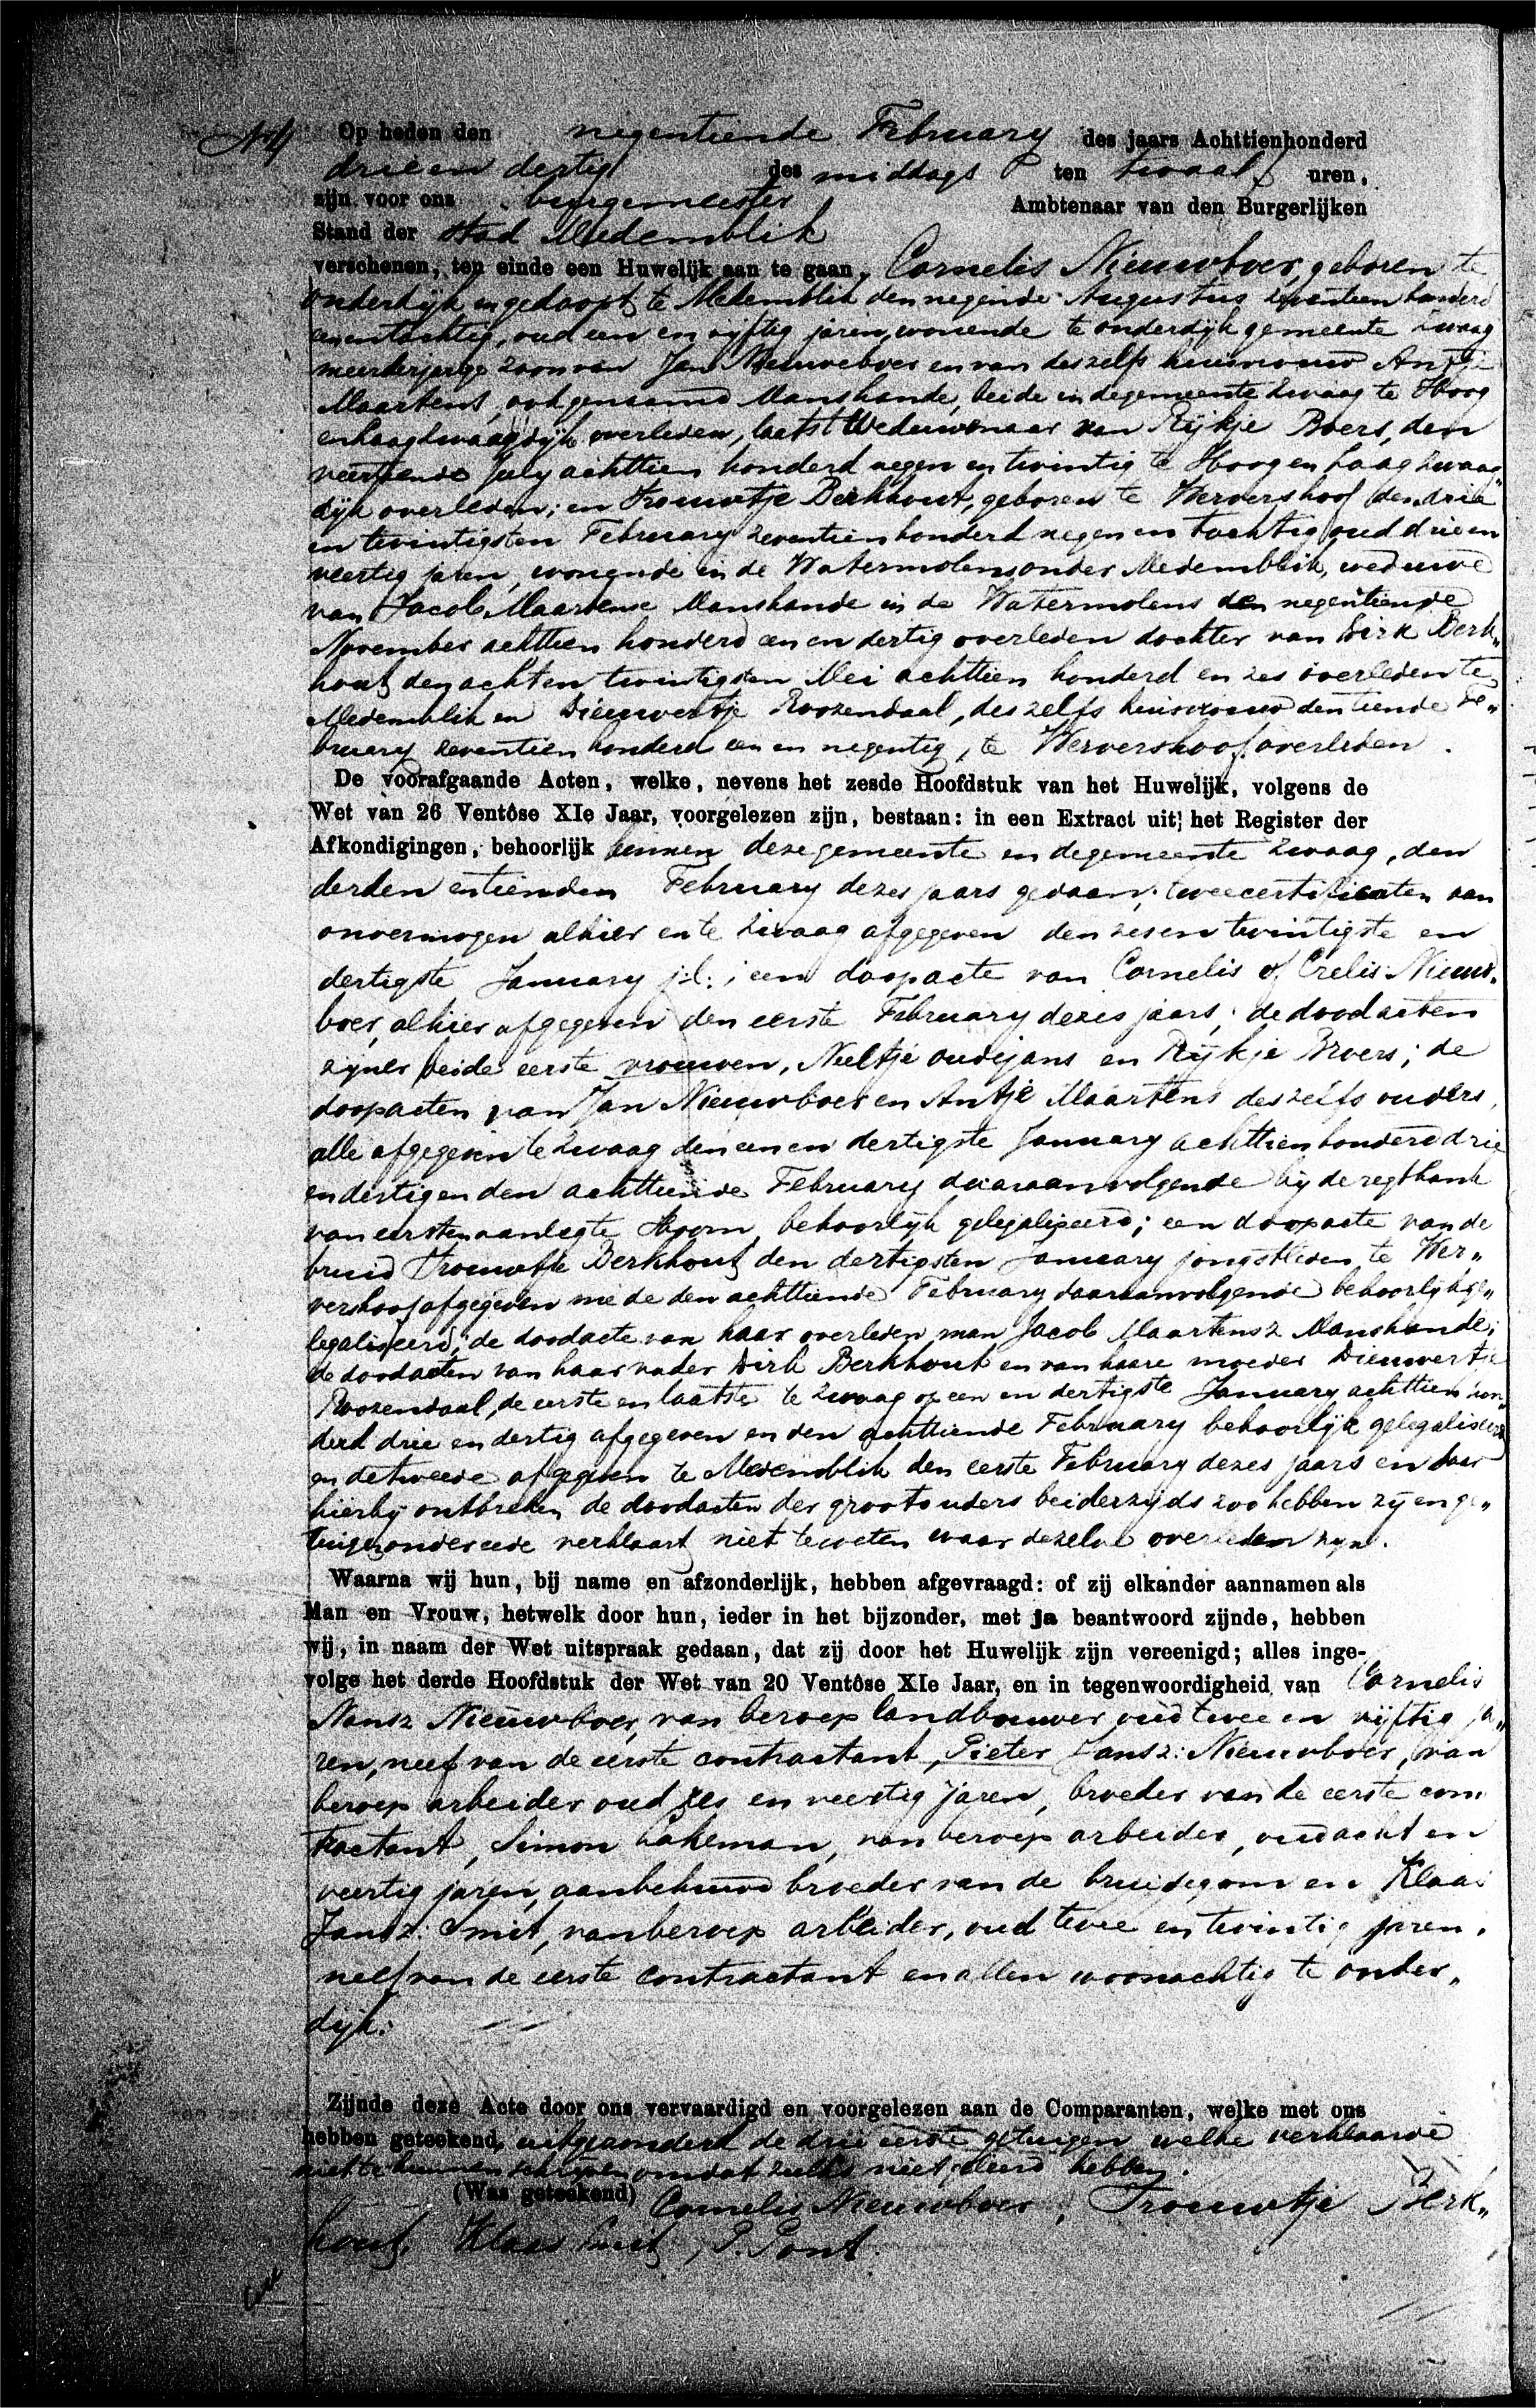 N4 Op heden den negentiende February des jaars Achttienhonderd
drie en dertig des middags ten twaalf uren,
zijn voor ons burgemeester Ambtenaar van den Burgerlijken
Stand der stad Medemblik
verschenen, ten einde een Huwelijk aan te gaan, Cornelis Nieuwboer, geboren te
onderdijk en gedoopt te Medemblik den negende Augustus zeventien honderd
een en tachtig, oud een en vijftig jaren, wonende te onderdijk gemeente Zwaag
meerderjarige zoon van Jan Nieuweboer en van deszelfs huisvrouw Antje
Maartens, ook genaamd Manshande, beide in de gemeente Zwaag te Hoog
en laagzwaagdijk overleden, laatst Weduwenaar van Rijkje Broers, den
veertiende July achttien honderd negen en twintig te Hoog en Laag Zwaag„
dijk overleden; en Trouwtje Berkhout, geboren te Wervershoof den drie
en twintigsten February zeventien honderd negen en tachtig oud drie en
veertig jaren, wonende in de Watermolens onder Medemblik, weduwe
van Jacob Maartensz Manshande in de Watermolens den negentiende
November achttien honderd een en dertig overleden dochter van Dirk Berk„
hout den acht en twintigsten Mei achttien honderd en zes overleden te
Medemblik en Dieuwertje Roozendaal, deszelfs huisvrouw den tiende Fe„
bruary zeventien honderd een en negentig, te Wervershoof overleden.
De voorafgaande Acten, welke, nevens het zesde Hoofdstuk van het Huwelijk, volgens de
Wet van 26 Ventôse XIe Jaar, voorgelezen zijn, bestaan: in een Extract uit het Register der
Afkondigingen, behoorlijk binnen deze gemeente en de gemeente Zwaag, den
derden en tienden February dezes jaars gedaan; twee certificaten van
onvermogen alhier en te Zwaag afgegeven den zes en twintigste en
dertigste January j.l.; een doopacte van Cornelis of Crelis Nieuw„
boer, alhier afgegeven den eerste February dezes jaars; de doodacten
zijner beide eerste vrouwen, Neeltje oudejans en Rijkje Broers; de
doopacten van Jan Nieuwboer en Antje Maartens deszelfs ouders,
alle afgegeven te Zwaag den een en dertigste January achttien honderd drie
en dertig en den achttiende February daaraanvolgende bij de regtbank
van eersten aanleg te Hoorn behoorlijk gelegaliseerd; een doopacte van de
bruid Trouwtje Berkhout den dertigsten January jongstleden te Wer„
vershoof afgegeven mede den achttiende February daaraanvolgende behoorlijk ge„
legaliseerd; de doodacte van haar overleden man Jacob Maartensz Manshande;
de doodacten van haar vader Dirk Berkhout en van haare moeder Dieuwertje
Roozendaal, de eerste en laatste te Zwaag op een en dertigste January achttien hon„
derd drie en dertig afgegeven en den achttiende February behoorlijk gelegaliseerd
en de tweede afgegeven te Medemblik den eerste February dezes jaars en daar
hierbij ontbreken de doodacten der grootouders beiderzijds zoo hebben zij en ge„
tuigen onder eede verklaart niet te weten waar dezelve overleden zijn.
Waarna wij hun, bij name en afzonderlijk, hebben afgevraagd: of zij elkander aannamen als
Man en Vrouw, hetwelk door hun, ieder in het bijzonder, met ja beantwoord zijnde, hebben
wij, in naam der Wet uitspraak gedaan, dat zij door het Huwelijk zijn vereenigd; alles inge-
volge het derde Hoofdstuk der Wet van 20 Ventôse XIe Jaar, en in tegenwoordigheid van Cornelis
Nansz Nieuwboer, van beroep landbouwer oud twee en vijftig ja„
ren, neef van de eerste contractant, Pieter Jansz: Nieuwboer, van
beroep arbeider oud zes en veertig jaren, broeder van de eerste con„
tractant, Simon Lakeman, van beroep arbeider, oud acht en
veertig jaren, aanbehuwd broeder van de bruidegom en Klaas
Jansz: Smit, van beroep arbeider, oud twee en twintig jaren,
neef van de eerste contractant en allen woonachtig te onder„
dijk.
Zijnde deze Acte door ons vervaardigd en voorgelezen aan de Comparanten, welke met ons
hebben geteekend, uitgezonderd de drie eerste getuigen welke verklaarde
niet te kunnen schrijven omdat zulks niet geleerd hebben.
(Was geteekend) Cornelis Nieuwboer, Trouwtje Berk„
hout, Klaas Smit, P. Pont.